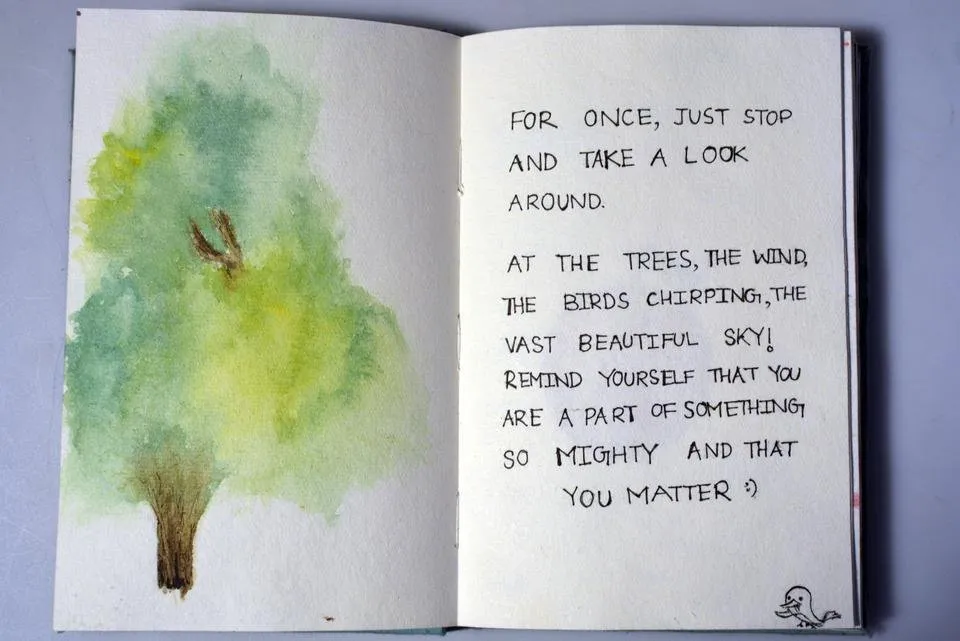 FOR ONCE, JUST STOP
AND TAKE A LOOK
AROUND.
AT THE TREES, THE WIND,
THE BIRDS CHIRPING, THE
VAST BEAUTIFUL SKY!
REMIND YOURSELF THAT YOU
ARE A PART OF SOMETHING
SO MIGHTY AND THAT
YOU MATTER :)